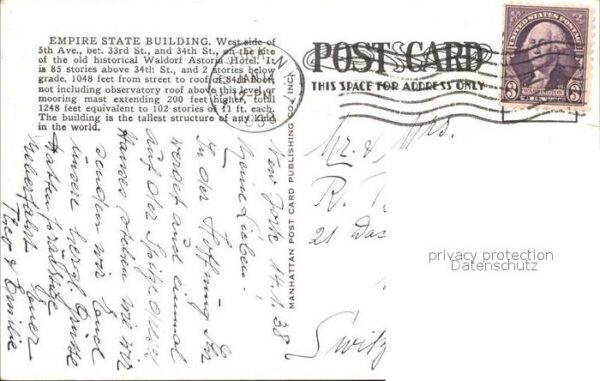 EMPIRE STATE BUILDING. West side of
5th Ave., bet. 33rd St., and 34th St., on the site
of the old historical Waldorf Astoria Hotel. It
is 85 stories above 34th St., and 2 stories below
grade. 1048 feet from street to roof of 84th floor
not including observatory roof above this level or
mooring mast extending 200 feet higher, total
1248 feet equivalent to 102 stories of 11 ft. each.
The building is the tallest structure of any kind
in the world.
MANHATTAN POST CARD PUBLISHING CO., INC.
POST CARD
THIS SPACE FOR ADDRESS ONLY
UNITED STATES POSTAGE
3 3
New York 14/1 38
Meine Lieben:
In der Hoffnung Ihr
werdet auch einmal
auf der Spitze dieses
Hauses stehen wie wir
senden wir Euch
unsere herzl. Grüsse
Hatten
Ueberfahrt Euer
Theo & Emilie
Mr. & Mrs.
R.
21 Das
Switz
privacy protection
Datenschutz